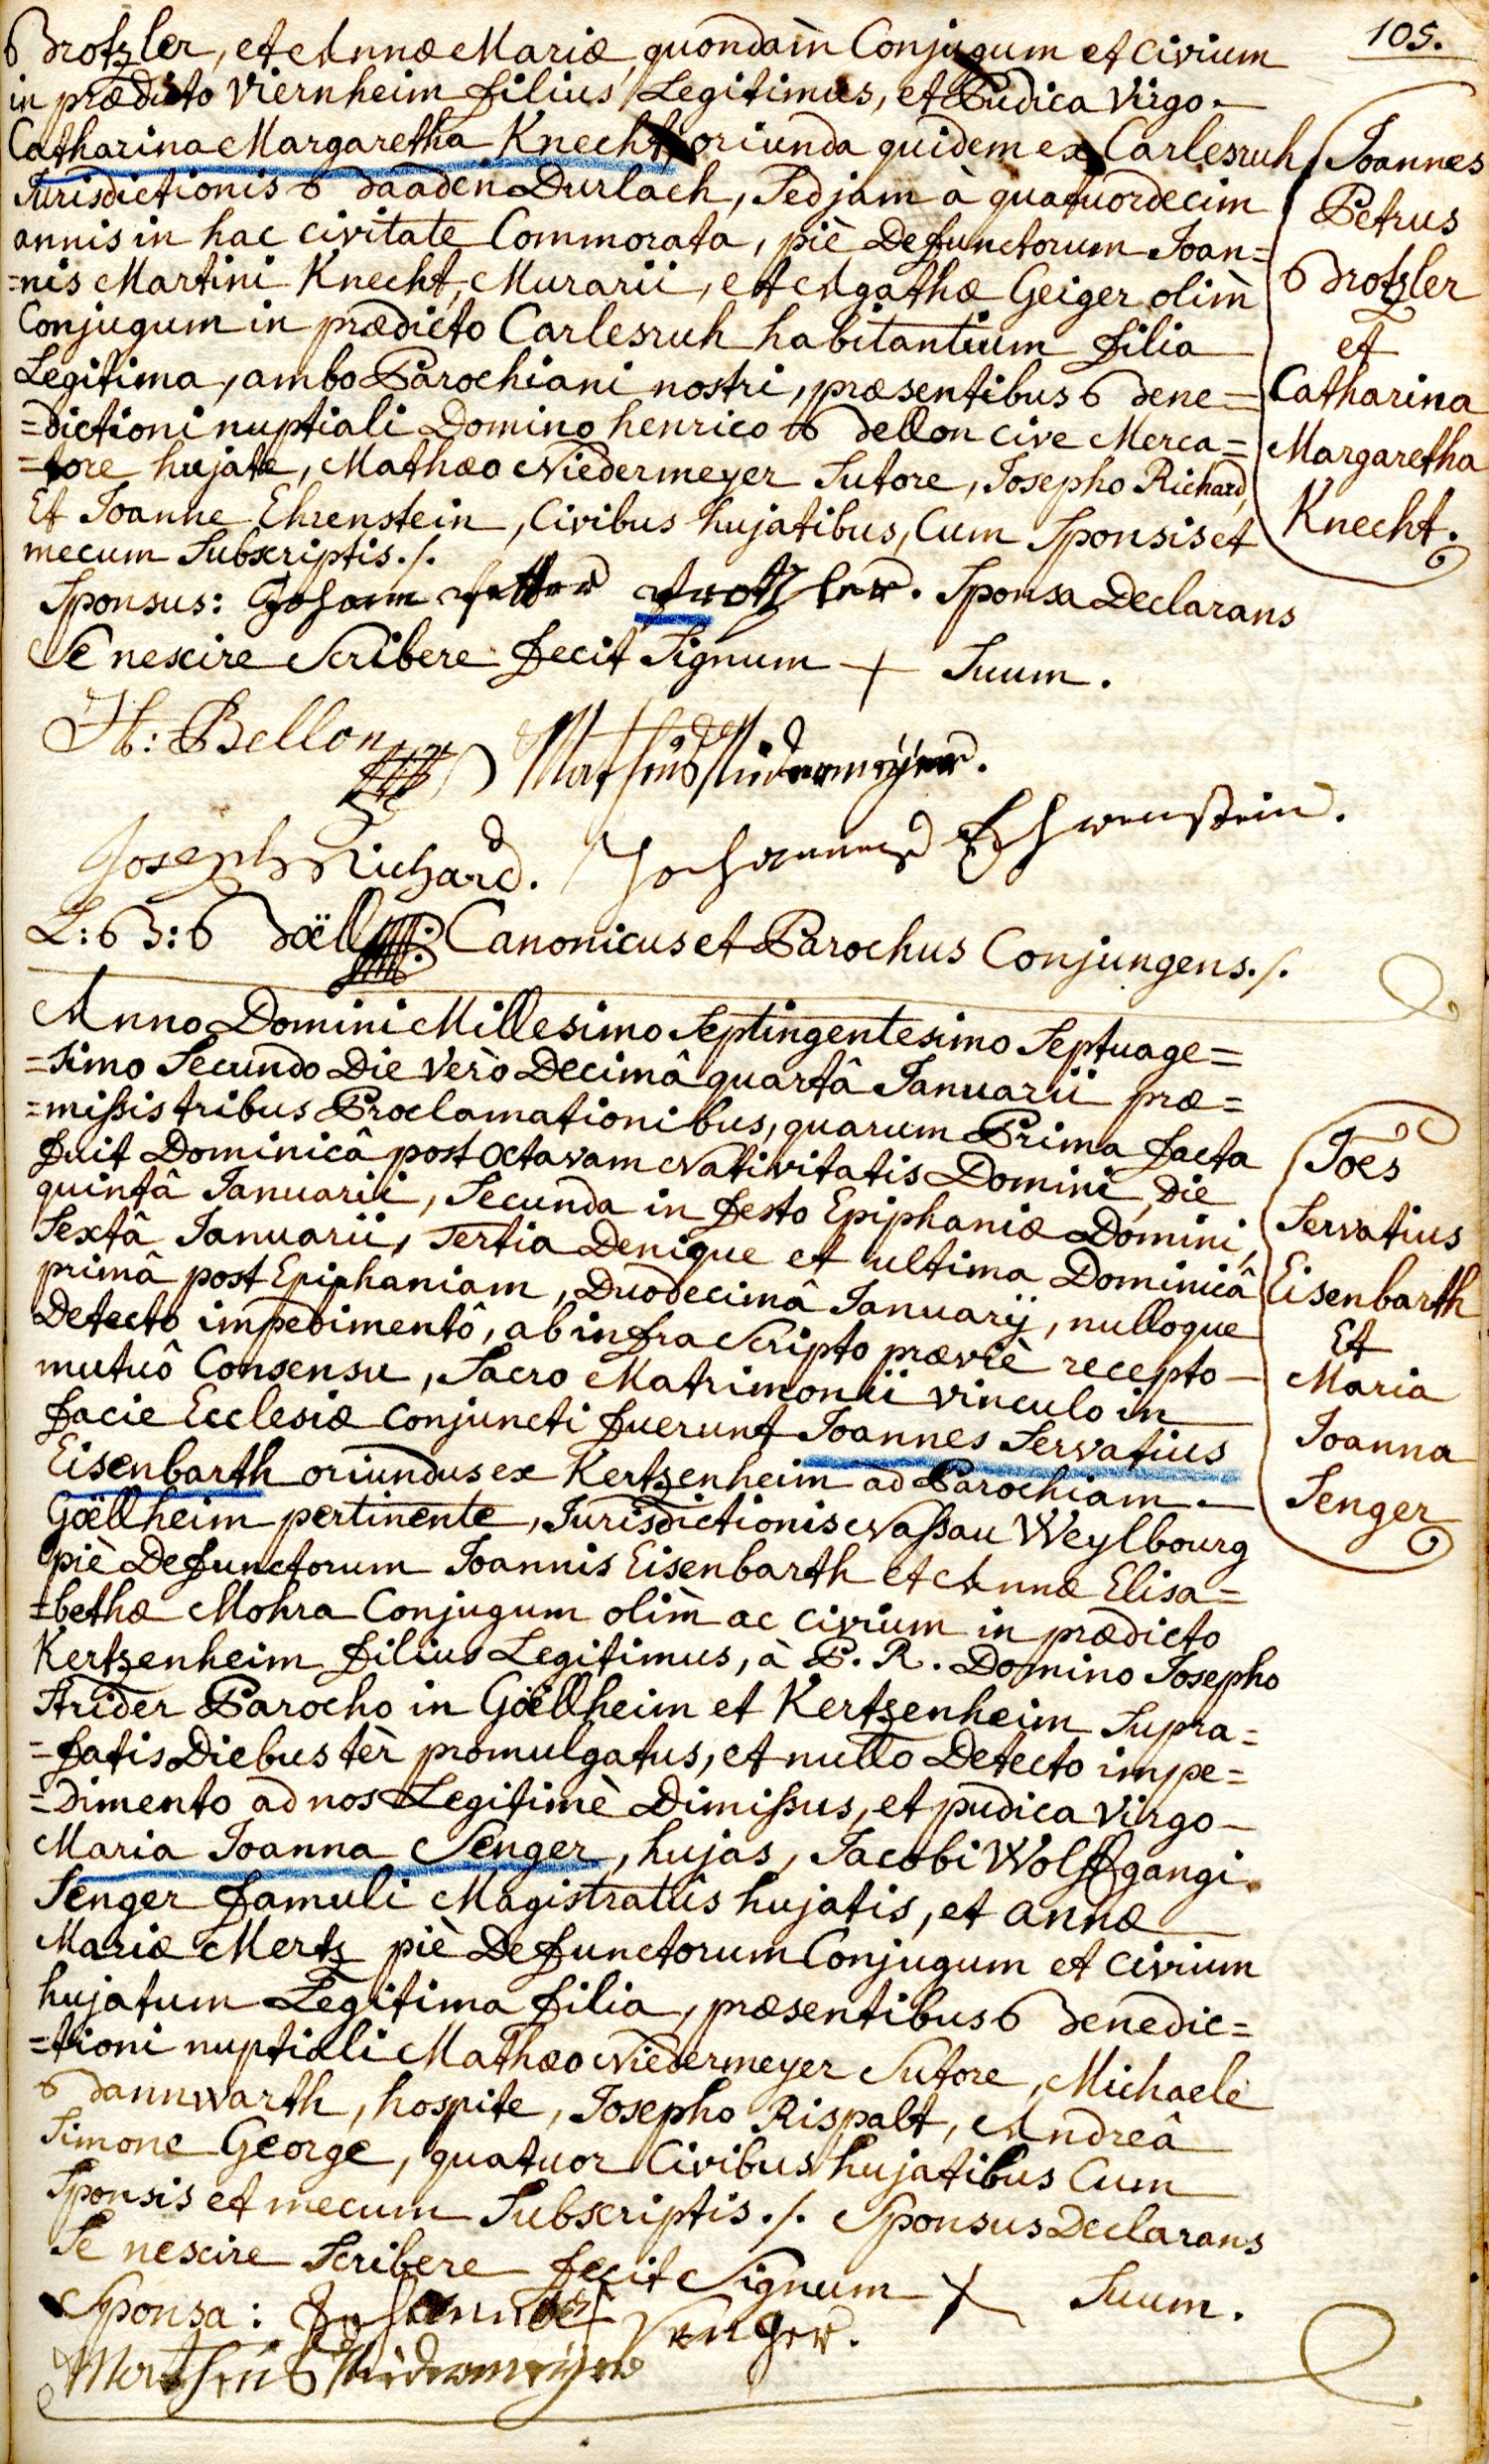 105.
Brotzler, et Annæ Mariæ, quondàm Conjugum et civium
in prædicto Viernheim filius Legitimus, et Pudica Virgo
Catharina Margaretha Knecht, oriunda quidem ex Carlesruh
Jurisdictionis Baaden Durlach, Sed jam à quatuordecim
annis in hac civitate Commorata, piè Defunctorum Joan=
=nis Martini Knecht, Murarii, et Agathæ Geiger olìm
Conjugum in prædicto Carlesruh habitantium filia
Legitima, ambo Parochiani nostri, præsentibus Bene=
=dictioni nuptiali Domino henrico Bellon cive Merca=
=tore hujate, Mathæo Niedermeyer Sutore, Josepho Richard,
Et Joanne Ehrenstein, Civibus hujatibus, Cum Sponsis et
mecum Subscriptis ./.
Sponsus: Johann Petter Protzler. Sponsa Declarans
Se nescire Scribere fecit Signum + Suum.
H: Bellon Matheus Nidermeyer.
Joseph Richard. Johannes Ehrenstein.
L: B: Böell Canonicus et Parochus Conjungens ./.
Joannes
Petrus
Brotzler
et
Catharina
Margaretha
Knecht.
Anno Domini Millesimo Septingentesimo Septuage=
=simo Secundo Die verò Decimâ quartâ Januarii præ=
=missis tribus Proclamationibus, quarum Prima facta
fuit Dominicâ post octavam Nativitatis Domini, Die
quintâ Januarii, Secunda in festo Epiphaniæ Domini,
Sextâ Januarii, Tertia Denique et ultima Dominicâ
primâ post Epiphaniam, Duodecimâ Januarij, nulloque
Detecto impedimentô, ab infra Scripto præviè recepto
mutuô Consensu, Sacro Matrimonii vinculo in
facie Ecclesiæ conjuncti fuerunt Joannes Servatius
Eisenbarth oriundus ex Kertzenheim ad Parochiam
Göellheim pertinente, Jurisdictionis Nassau Weylbourg
piè Defunctorum Joannis Eisenbarth et Annæ Elisa=
=bethæ Mohra Conjugum olìm ac civium in prædicto
Kertzenheim filius Legitimus, à P. R. Domino Josepho
Strider Parocho in Göellheim et Kertzenheim Supra=
=fatis Diebus tèr promulgatus, et nullo Detecto impe=
=dimento ad nos Legitimè Dimissus, et pudica Virgo
Maria Joanna Senger, hujas, Jacobi Wolffgangi
Senger famuli Magistratûs hujatis, et annæ
Mariæ Mertz piè Defunctorum Conjugum et civium
hujatum Legitima filia, præsentibus Benedic=
=tioni nuptiali Mathæo Niedermeyer Sutore, Michaele
Bannwarth, hospite, Josepho Rispalt, Andreâ
Simone George, quatuor Civibus hujatibus Cum
Sponsis et mecum Subscriptis ./. Sponsus Declarans
Se nescire Scribere fecit Signum + Suum.
Sponsa: Senger.
Matheus Nidermeyer
Joes
Servatius
Eisenbarth
Et
Maria
Joanna
Senger